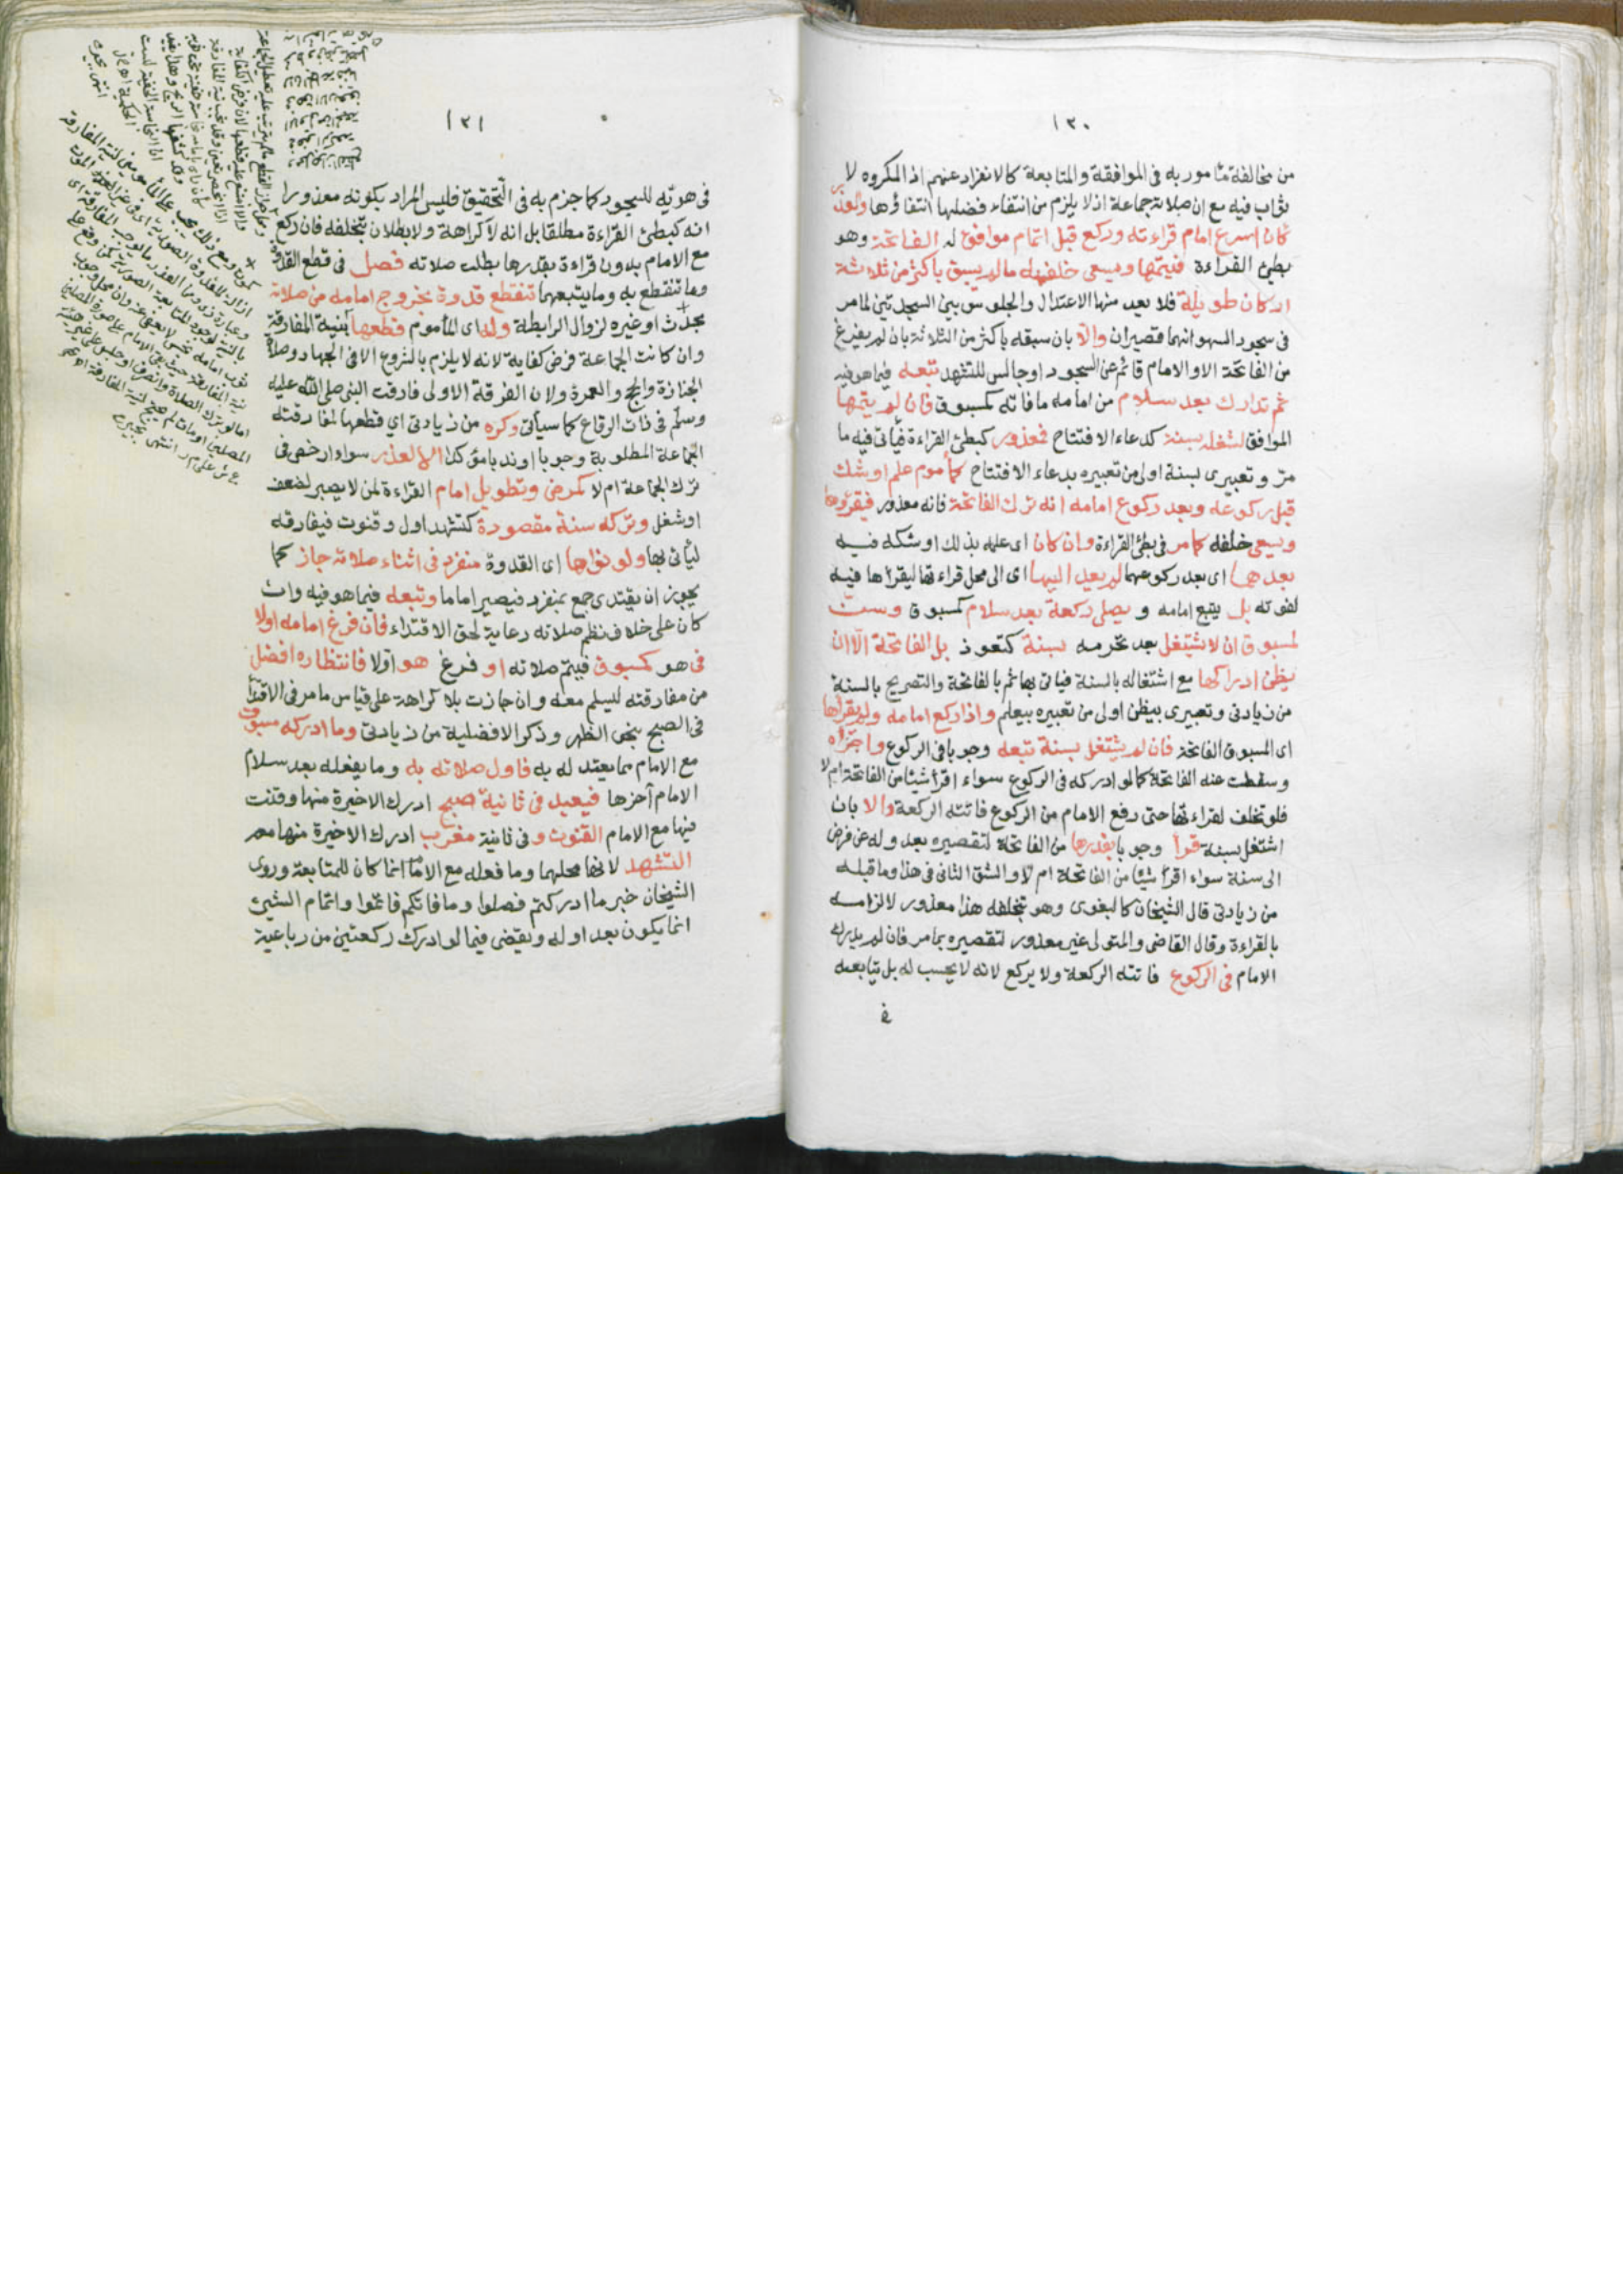 ١٢٠
من مخالفة مأمور به فى الموافقة والمتابعة كالانفراد عنهم اذ المكروه لا
ثواب فيه مع ان صلاته جماعة اذ لا يلزم من انتفاء فضلها انتفاؤها والعذر
كان اسرع امام قراءته وركع قبل اتمام موافق له الفاتحة وهو
بطئ القراءة فيتمها ويسعى خلفه ما لم يسبق باكثر من ثلاثة
اركان طويلة فلا يعد منها الاعتدال والجلوس بين السجدتين لما مر
فى سجود السهو انهما قصيران والا بان سبقه باكثر من الثلاثة بان لم يفرغ
من الفاتحة الا والامام قائم عن السجود او جالس للتشهد تبعه فيما هو فيه
ثم تدارك بعد سلام من امامه ما فاته كمسبوق فان لم يتمها
الموافق لشغله بسنة كدعاء الافتتاح فمعذور كبطئ القراءة فيأتى فيه ما
مر وتعبيرى بسنة اولى من تعبيره بدعاء الافتتاح كمأموم علم او شك
قبل ركوعه وبعد ركوع امامه انه ترك الفاتحة فانه معذور فيقرؤها
ويسعى خلفه كما مر فى بطئ القراءة وان كان اى علمه بذلك او شكه فيه
بعدهما اى بعد ركوعهما لم يعد اليها اى الى محل قراءتها ليقرأها فيه
لفوته بل يتبع امامه و يصلى ركعة بعد سلام كمسبوق وسن
لمسبوق ان لا يشتغل بعد تحرمه بسنة كتعوذ بل الفاتحة الا ان
يظن ادراكها مع اشتغاله بالسنة فيأتى بها ثم بالفاتحة والتصريح بالسنة
من زيادتى وتعبيرى بيظن اولى من تعبيره بيعلم واذا ركع امامه ولم يقرأها
اى المسبوق الفاتحة فان لم يشتغل بسنة تبعه وجوبا فى الركوع واجزأه
وسقطت عنه الفاتحة كما لو ادركه فى الركوع سواء اقرأ شيئا من الفاتحة ام لا
فلو تخلف لقراءتها حتى رفع الامام من الركوع فاتته الركعة والا بان
اشتغل بسنة قرأ وجوبا بقدرها من الفاتحة لتقصيره بعدوله عن فرض
الى سنة سواء اقرأ شيئا من الفاتحة ام لا والشق الثانى فى هذا وما قبله
من زيادتى قال الشيخان كالبغوى وهو بتخلفه هذا معذور لالزامه
بالقراءة وقال القاضى والمتولى غير معذور لتقصيره بما مر فان لم يدرك
الامام فى الركوع فاتته الركعة ولا يركع لانه لا يحسب له بل يتابعه
فى
١٢١
فى هويه للسجود كما جزم به فى التحقيق فليس المراد بكونه معذورا
انه كبطئ القراءة مطلقا بل انه لا كراهة ولا بطلان بتخلفه فان ركع
مع الامام بدون قراءة بقدرها بطلت صلاته فصل فى قطع القدوة
وما تنقطع به وما يتبعهما تنقطع قدوة بخروج امامه من صلاته
بحدث او غيره لزوال الرابطة وله اى المأموم قطعها بنية المفارقة
وان كانت الجماعة فرض كفاية لانه لا يلزم بالشروع الا فى الجهاد وصلاة
الجنازة والحج والعمرة ولان الفرقة الاولى فارقت النبى صلى الله عليه
وسلم فى ذات الرقاع كما سيأتى وكره من زيادتى اى قطعها لمفارقته
الجماعة المطلوبة وجوبا او ندبا مؤكدا الا لعذر سواء ارخص فى
ترك الجماعة ام لا كمرض وتطويل امام القراءة لمن لا يصبر لضعف
او شغل وتركه سنة مقصودة كتشهد اول وقنوت فيفارقه
ليأتى بها ولو نواها اى القدوة منفرد فى اثناء صلاته جاز كما
يجوز ان يقتدى جمع بمنفرد فيصير اماما وتبعه فيما هو فيه وان
كان على خلاف نظم صلاته رعاية لحق الاقتداء فان فرغ امامه اولا
فى هو كمسبوق فيتم صلاته او فرغ هو اولا فانتظاره افضل
من مفارقته ليسلم معه وان جازت بلا كراهة على قياس ما مر فى الاقتداء
فى الصبح بنحو الظهر وذكر الافضلية من زيادتى وما ادركه مسبوق
مع الامام مما يعتد له به فاول صلاته به وما يفعله بعد سلام
الامام آخرها فيعيد فى ثانية صبح ادرك الاخيرة منها وقنت
فيها مع الامام القنوت و فى ثانية مغرب ادرك الاخيرة منها معه
التشهد لانها محلهما وما فعله مع الامام انما كان للمتابعة وروى
الشيخان خبر ما ادركتم فصلوا وما فاتكم فاتموا واتمام الشئ
انما يكون بعد اوله ويقضى فيما لو ادرك ركعتين من رباعية